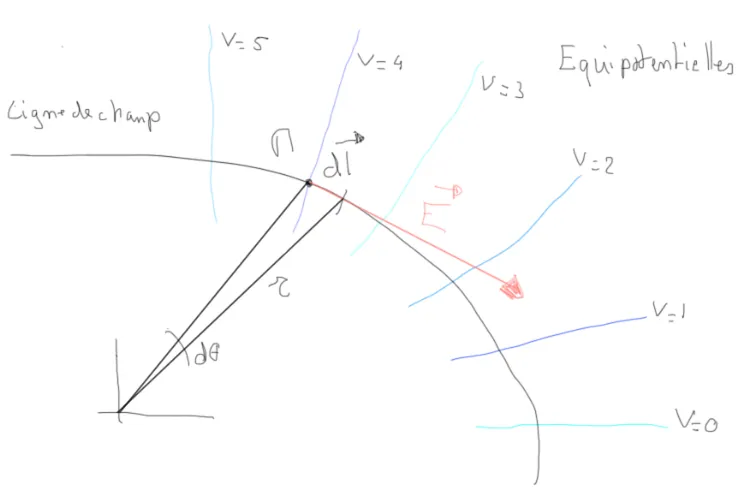 V=5
V=4
Equipotentielles
V=3
Ligne de champ
M
dl
V=2
E
r
V=1
dθ
V=0